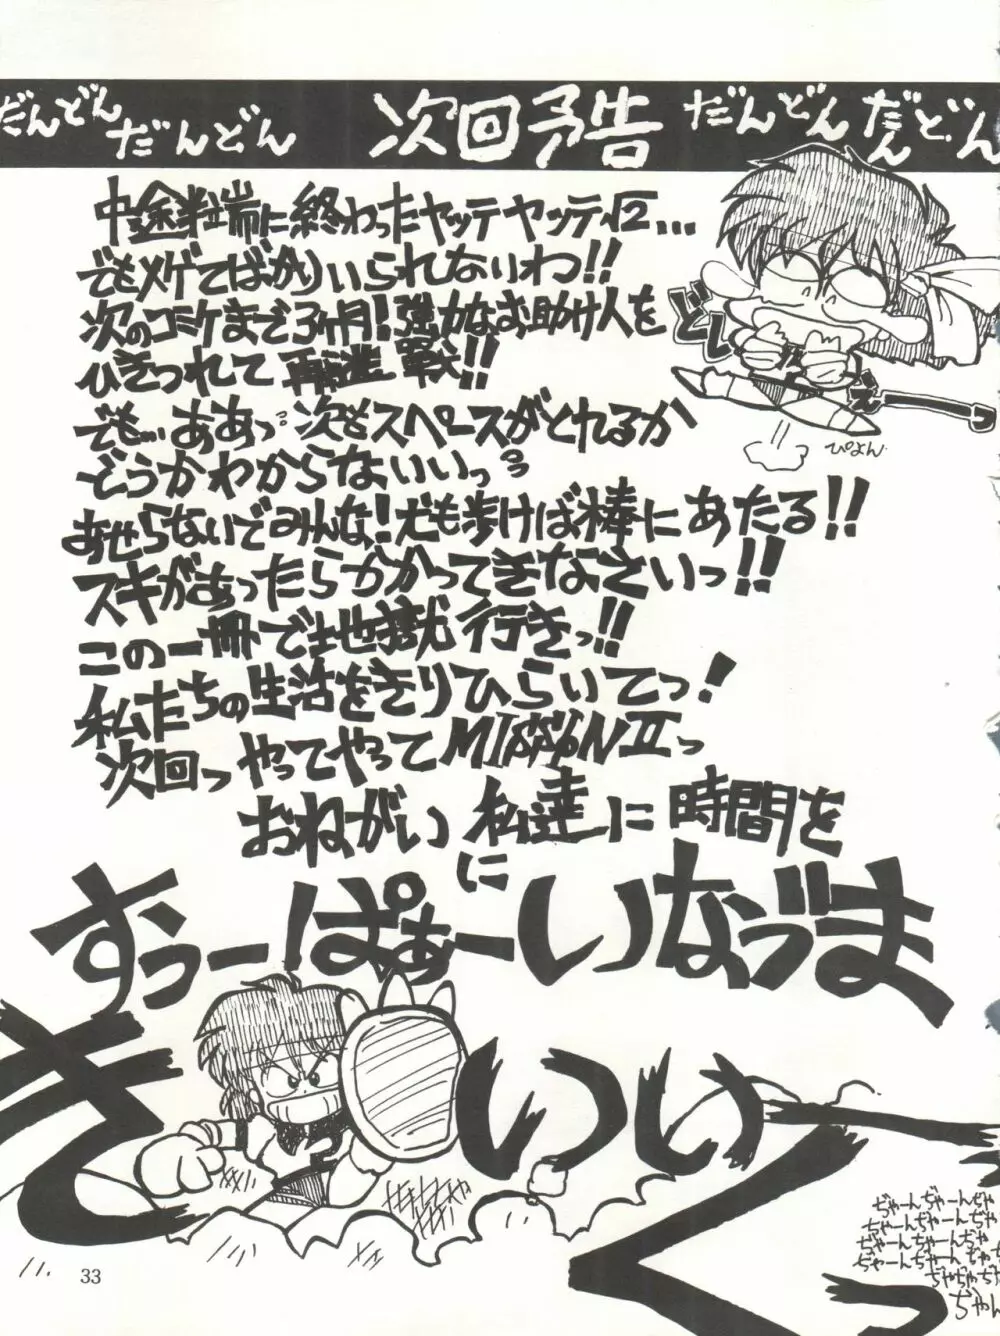 だんどん だんどん 次回予告 だんどん だんどん
中途半端に終わったヤッテヤッテ√2...
でもメゲてばかりいられないわ!!
次のコミケまで3ヶ月!強力なお助け人を
ひきつれて再挑戦!!
でも...ああっ次もスペースがとれるか
どうかわからないいっ
あせらないでみんな!犬も歩けば棒にあたる!!
スキがあったらかかってきなさいっ!!
この一冊で地獄行きっ!!
私たちの生活をきりひらいてっ!
次回っ やってやってMISSIONⅡっ
おねがい 私達に時間を
に
すぅーぱぁーいなづま
きいいーくっ
どし
え
ぴよん
ぢゃーんぢゃーんぢゃ
ぢゃーんぢゃーんぢゃ
ぢゃーんぢゃーんぢゃ
ぢゃーんぢゃーんぢゃ
ぢゃぢゃぢゃ
ぢゃん
33